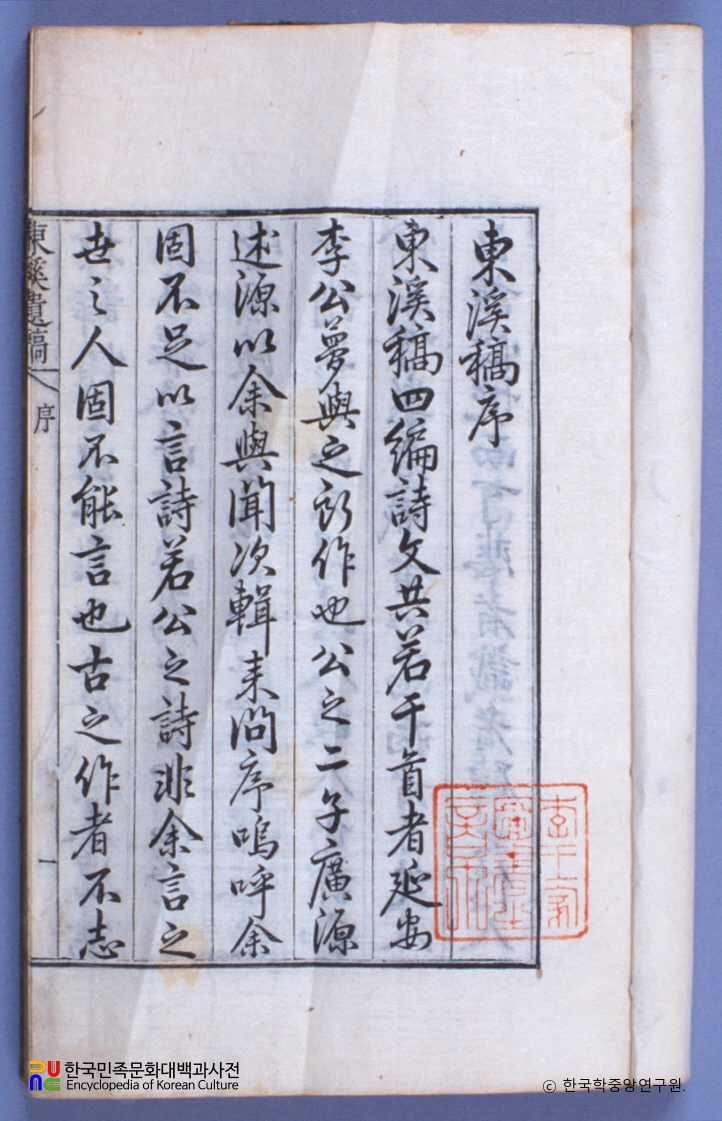 東溪稿序
東溪稿四編詩文共若干首者延安
李公夢與之所作也公之二子廣源
述源以余與聞次輯来問序嗚呼余
固不足以言詩若公之詩非余言之
世之人固不能言也古之作者不志
東溪遺稿
序
一
한국민족문화대백과사전
Encyclopedia of Korean Culture
ⓒ 한국학중앙연구원.